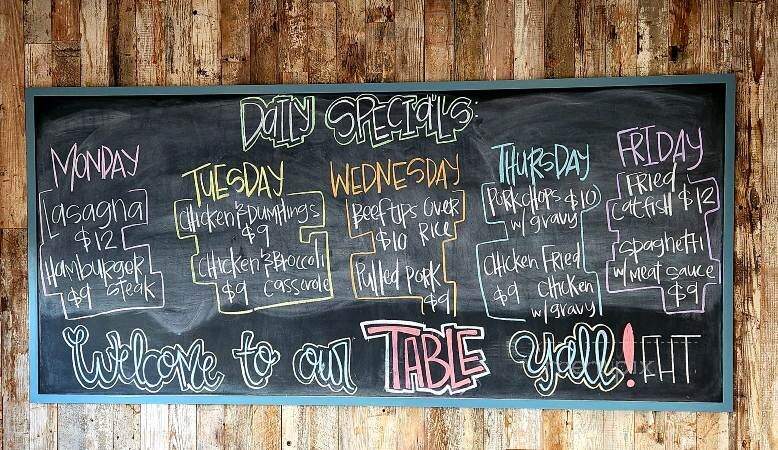 DAILY SPECIALS:
MONDAY
Lasagna
$12
HAMBURGER
$9 STEAK
TUESDAY
CHICKEN & DUMPLINGS
$9
CHICKEN & BROCCOLI
$9 CASSEROLE
WEDNESDAY
BEEF TIPS OVER
$10 RICE
Pulled PORK
$9
THURSDAY
PORKCHOPS $10
w/ gravy
CHICKEN FRIED
$9 CHICKEN
w/ gravy
FRIDAY
FRIED
CATFISH $12
SPAGHETTI
w/ MEAT SAUCE
$9
Welcome to our TABLE Y'all! EHT